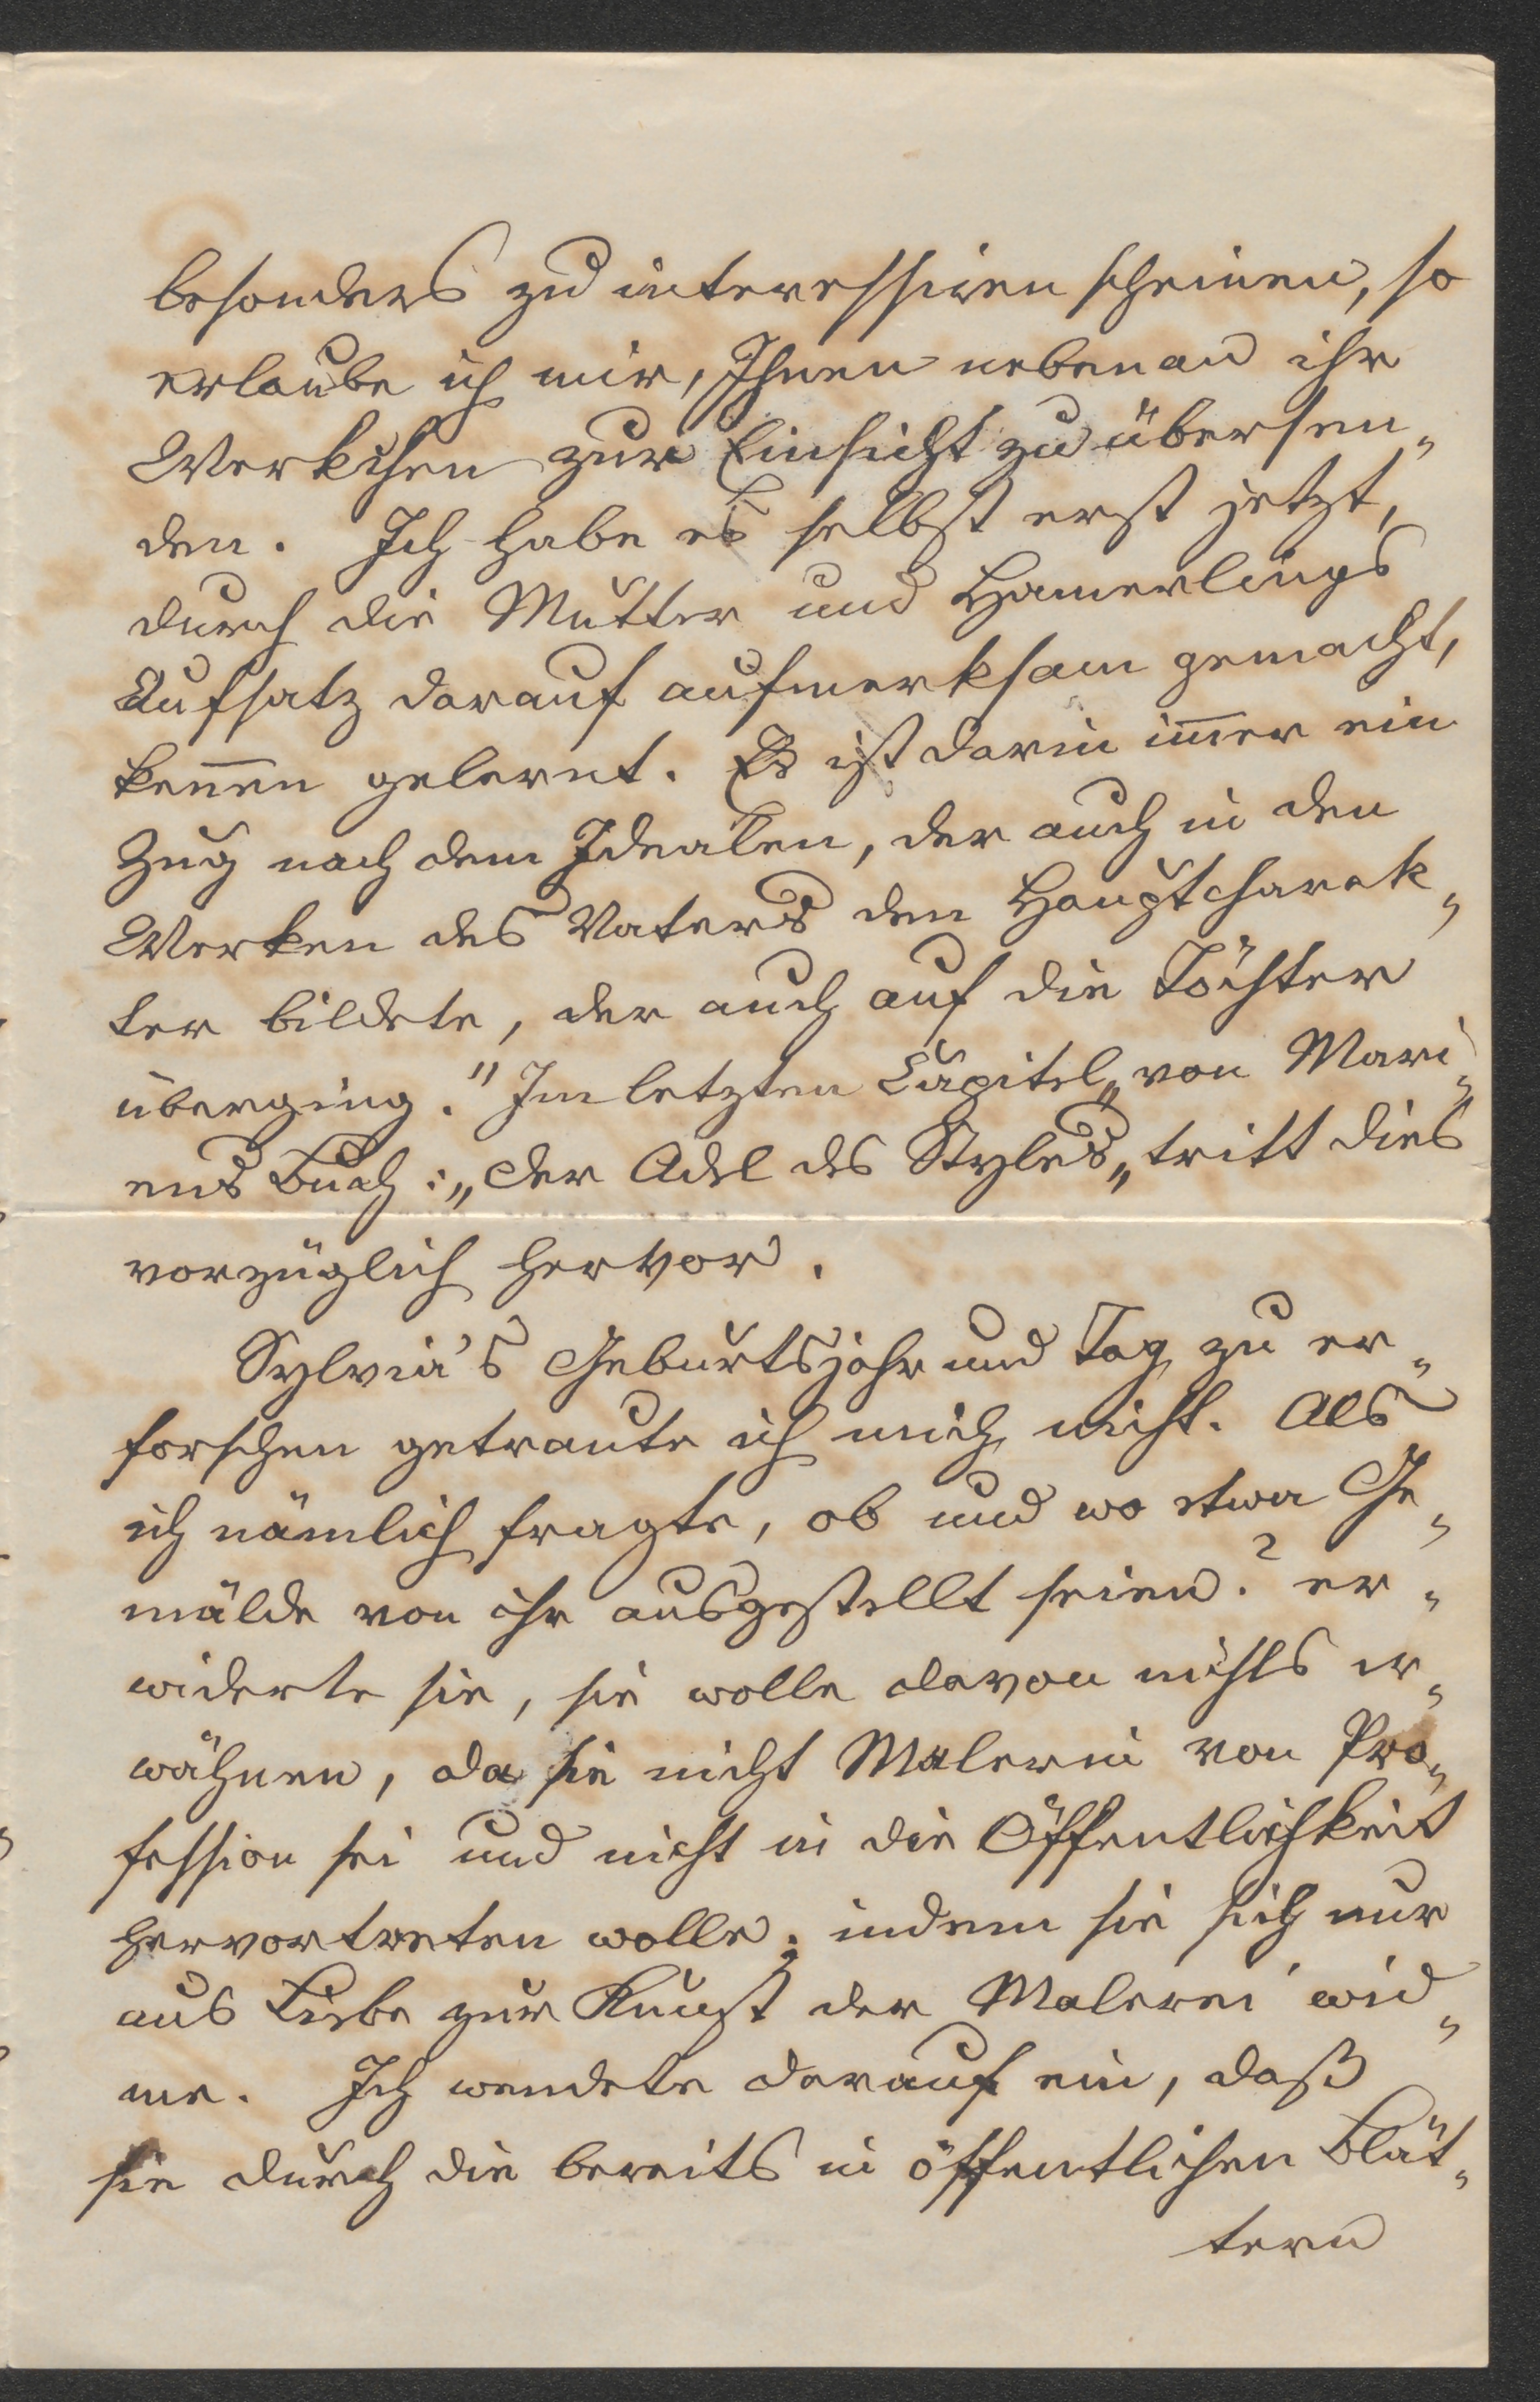 besonders zu interessiren scheinen, so
erlaube ich mir, Ihnen nebenan ihr
Werkchen zur Einsicht zu übersen„
den. Ich habe es selbst erst jetzt,
durch die Mutter und Hamerlings
Aufsatz darauf aufmerksam gemacht,
keñen gelernt. Es ist darin im̃er ein
Zug nach dem Idealen, der auch in den
Werken des Vaters den Hauptcharak„
ter bildete, der auch auf die Töchter
überging." Im letzten Capitel„ von Mari„
ens Buch: „der Adel des Styles„ tritt dies
vorzüglich hervor.
Sylvia's Geburtsjahr und Tag zu er„
forschen getraute ich mich nicht. Als
ich nämlich fragte, ob und wo etwa Ge„
mälde von ihr ausgestellt seien? er„
widerte sie, sie wolle davon nichts er„
wähnen, da sie nicht Malerin von Pro„
fession sei und nicht in die Öffentlichkeit
hervortreten wolle; indem sie sich nur
aus Liebe zur Kunst der Malerei wid„
me. Ich wendete darauf ein, daß
sie durch die bereits in öffentlichen Blät„
tern